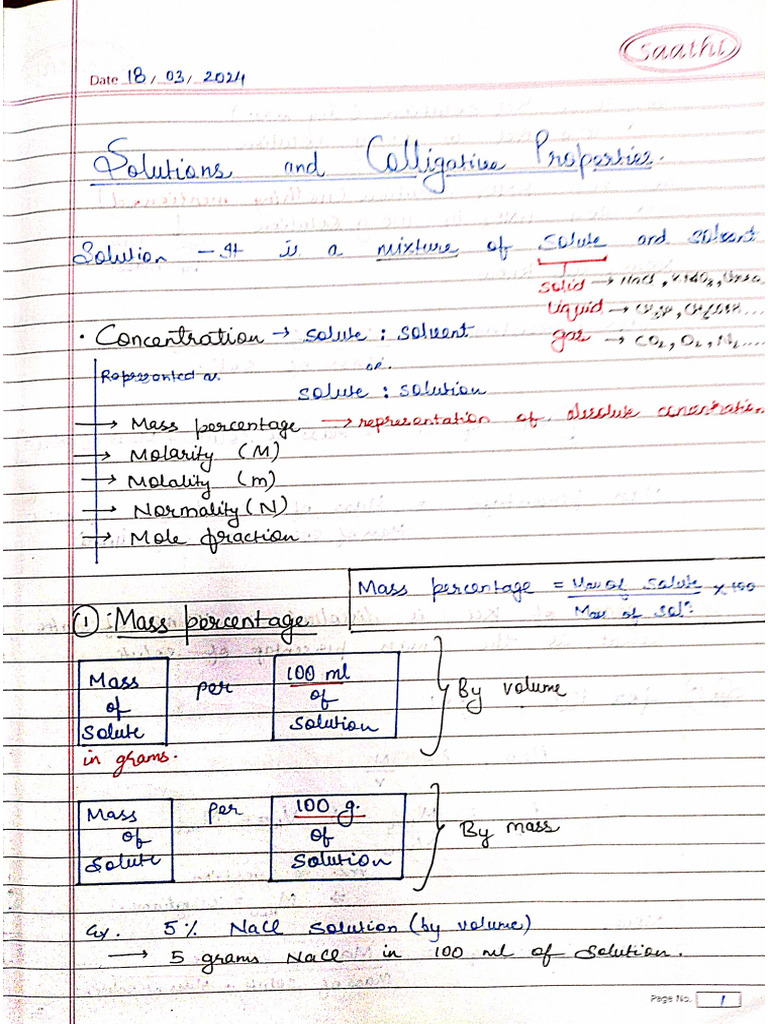 saathi
Date 18 / 03 / 2024
Solutions and Colligative Properties.
Solution – It is a mixture of solute and solvent
solid → NaCl, KNO3, Urea
liquid → CH3COOH....
gas → CO2, O2, N2....
• Concentration → solute : solvent
Represented as or
solute : solution
→ Mass percentage → representation of absolute concentration
→ Molarity (M)
→ Molality (m)
→ Normality (N)
→ Mole fraction
Mass percentage = Mass of solute × 100
Mass of solⁿ
① : Mass percentage
Mass of solute per 100 ml of solution } By volume
in grams.
Mass of solute per 100 g. of solution } By mass
Ex. 5% NaCl solution (by volume)
→ 5 grams NaCl in 100 ml of solution.
Page No. 1